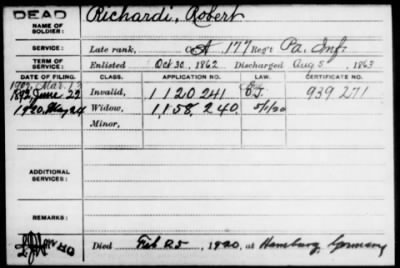 DEAD
NAME OF SOLDIER: Richardi, Robert
SERVICE: Late rank, Co. A 177 Reg't Pa. Inf.
TERM OF SERVICE: Enlisted Oct 30, 1862 Discharged Aug 5, 1863
DATE OF FILING. CLASS. APPLICATION NO. LAW. CERTIFICATE NO.
1892 June 22 Invalid, 1120241 939271
1920, May 24 Widow, 1,158,240 5/1/20
Minor,
ADDITIONAL SERVICES:
REMARKS:
Died Feb 25, 1920, at Hamburg, Germany